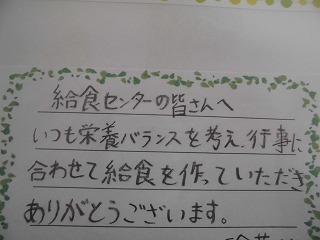 給食センターの皆さんへ
いつも栄養バランスを考え、行事に
合わせて給食を作っていただき
ありがとうございます。